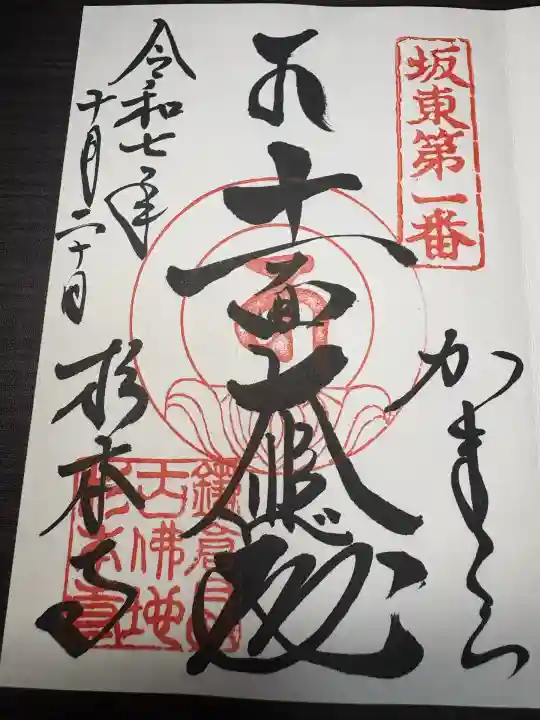 坂東第一番
かまくら
十一面大悲殿
令和七年
十月二十日
杉本寺
鎌倉
古佛地